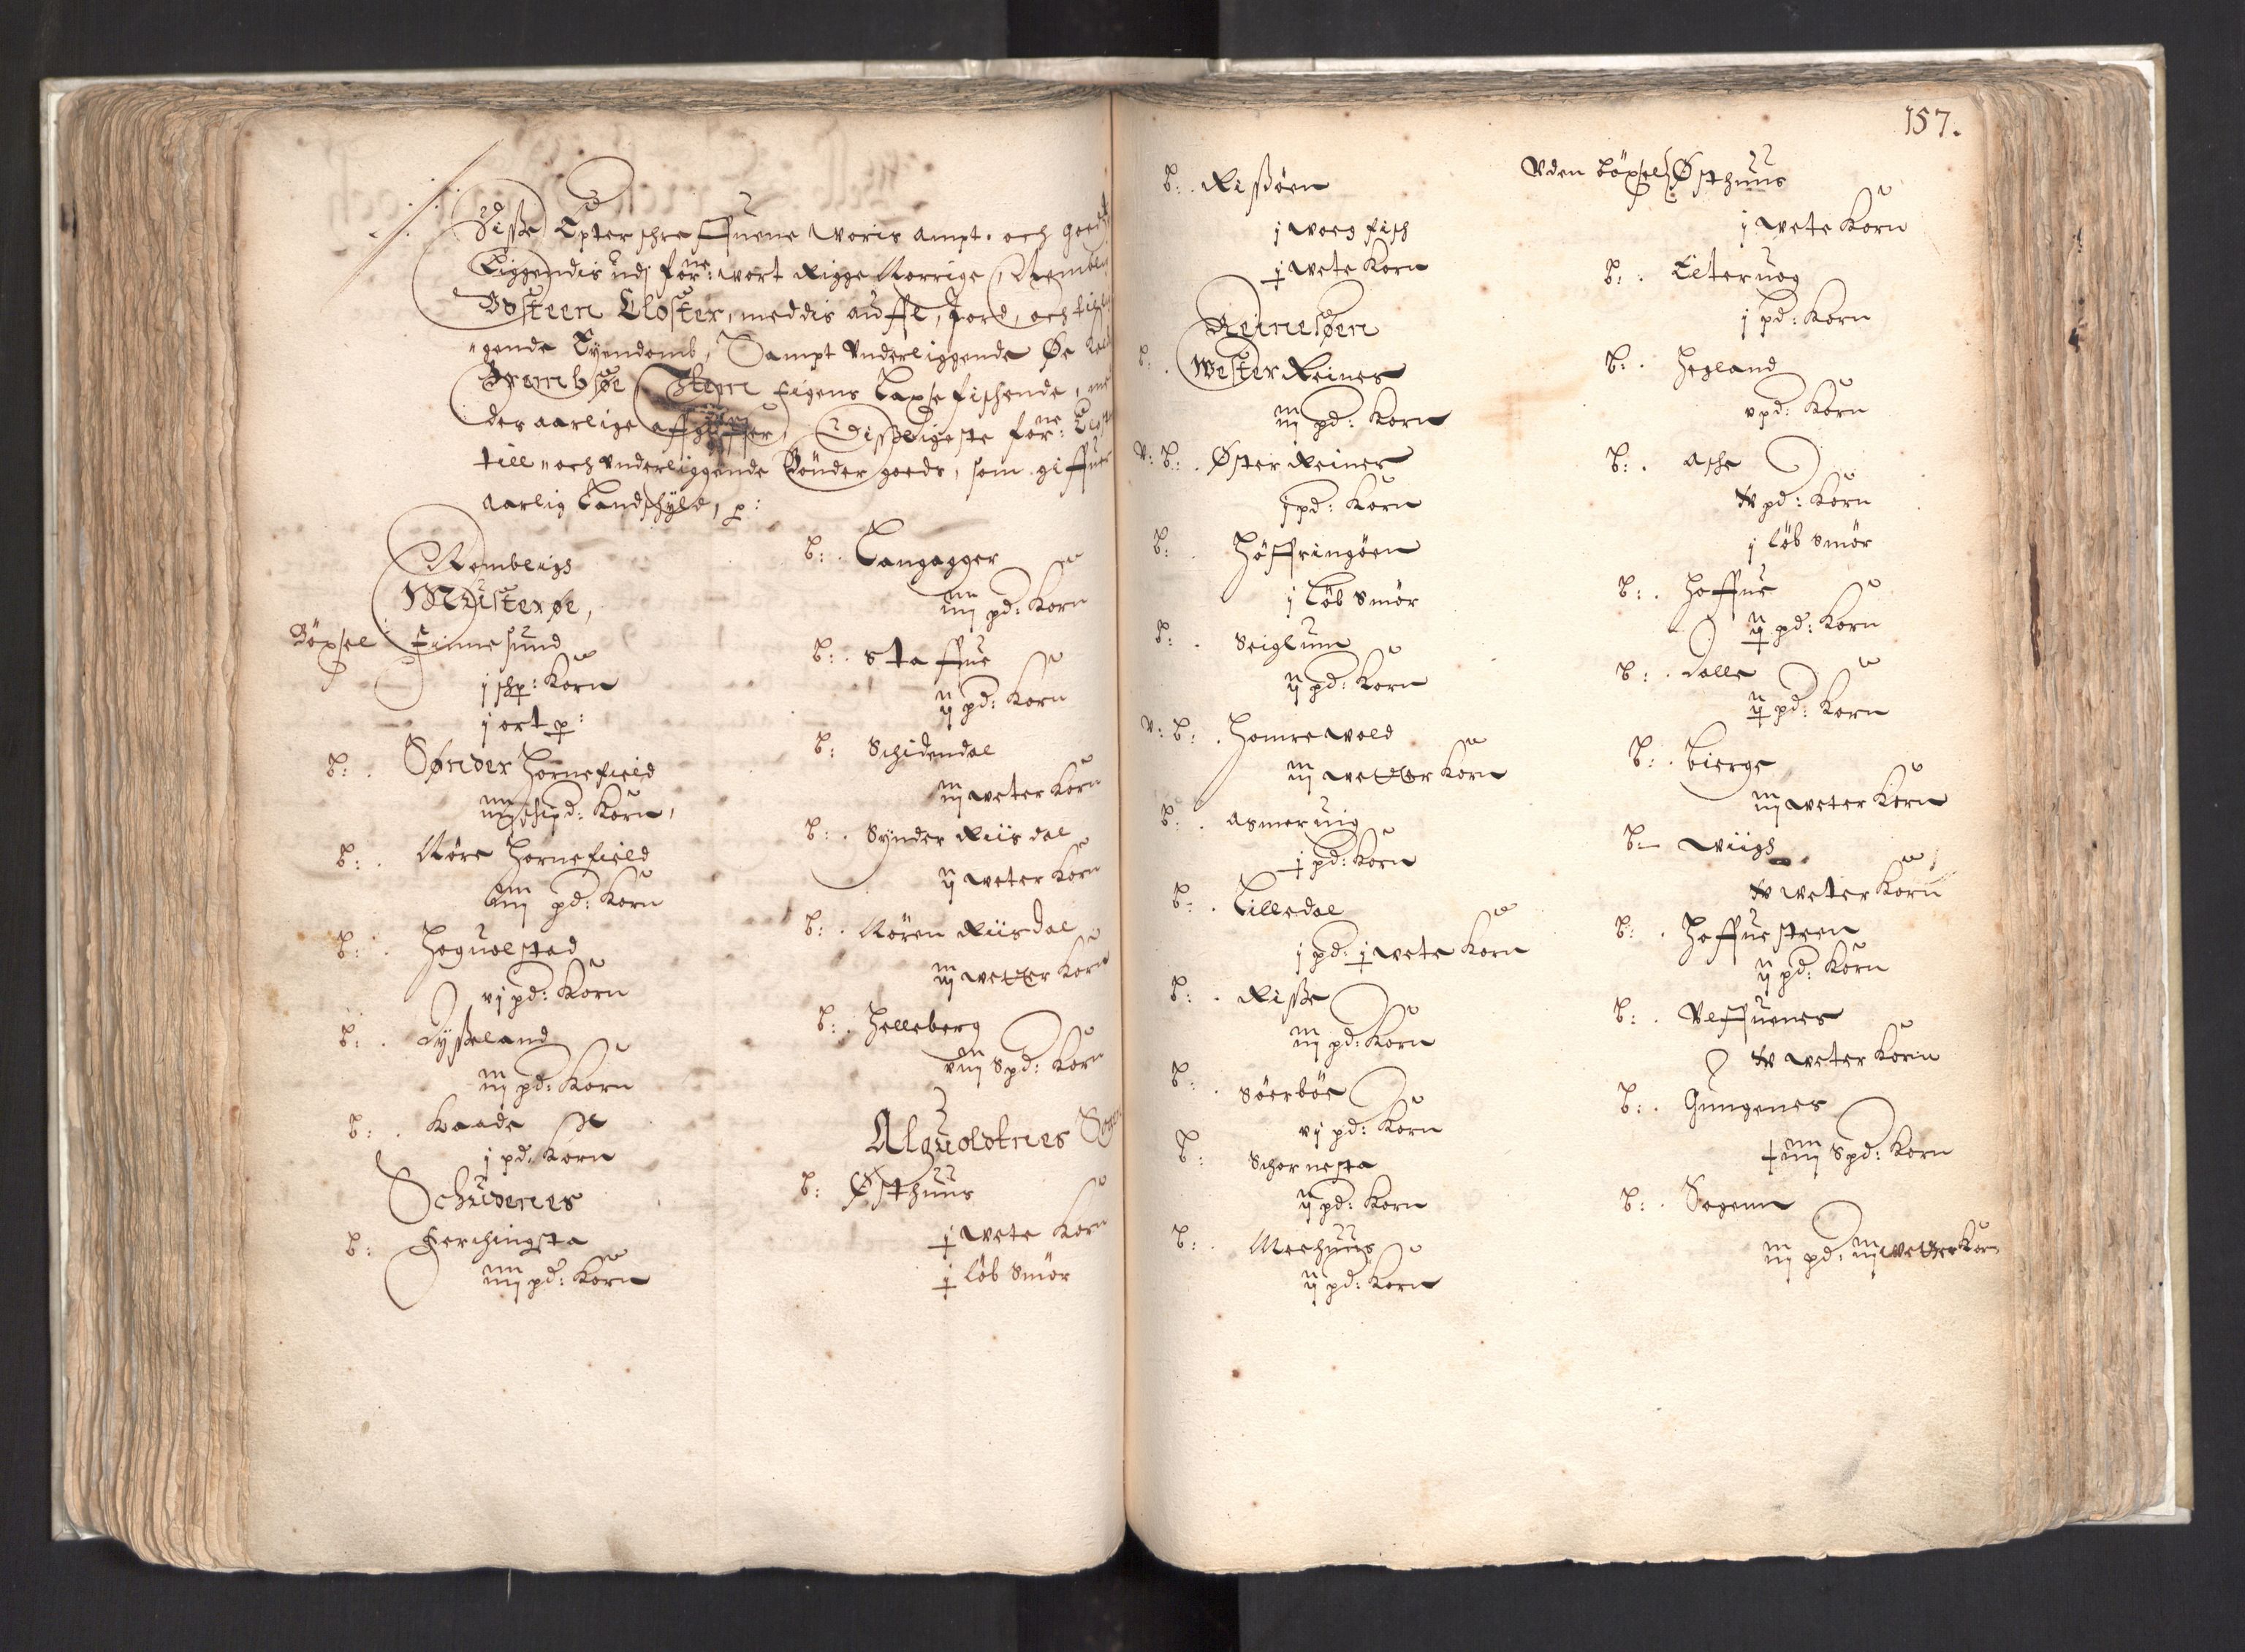 Disse Epterschreffuene woris ampt. och goedtz
Liggendis udj for:ne wort Rigge Norrige, Nembl:
Vtsteen Closter, meddis auffl, Jord, och till
"gende Eyendomb, Sampt Vnderliggende Øe
Brembsøe Item Eigens Laxsefischende, me
des aarlige affgiffter, Disseligeste for:ne Clost
till" och Vnderliggende Bönder goeds, som giffuer
aarlig Landschyld, p:
Nembligs
Musterøe,
Böxsel Finnesund
j schp: Korn
j ort p:
B: . Sønder Hornefield
iiij schipd: Korn,
B: . Nöre Hornefield
pd: Korn
B: . Hoguolstad
vj pd: Korn
B: . Dysseland
iij pd: Korn
B: . Baade
j pd: Korn
Schudenes
B: Ferchingsta
iiij pd: Korn
B: . Langagger
iiij pd: Korn
B: . Staffne
ij pd: Korn
B: Schidendal
iij weter Korn
B: . Synder Riisdal
ij weter Korn
B: . Nören Riisdal
iij wetter Korn
B: . Helleberg
viij Spd: Korn
Alguoldtnes Sogn
B: Østhuus
j wete Korn
j löb Smör
157.
B: . Rissöen
j woeg fisch
j wete Korn
Reinesøen
B: . Wester Reines
iij pd: Korn
V: B: . Øster Reines
j pd: Korn
B: . Höffringöen
j Löb Smör
B: . Seiglum
ij pd: Korn
V: B: . Homrewold
iij wetter Korn
B: . Asmeruig
j pd: Korn
B: . Lilledal
j pd: j wete Korn
B: . Risse
iij pd: Korn
B: . Söerböe
vj pd: Korn
B: Schornesta
ij pd: Korn
B: . Meehuus
ij pd: Korn
Vden böxsel Østhuus
j wete Korn
B: . Elteruog
j pd: Korn
B: . Hegland
v pd: Korn
B: . Asche
pd: Korn
j löb Smör
B: . Hoffue
ij pd: Korn
B: . Dalle
ij pd: Korn
B: . Bierge
iij weter Korn
B: Wiigs
weter Korn
B: . Hoffuesteen
ij pd: Korn
B: . Vlffuenes
weter Korn
B: . Gungenes
iiij Spd: Korn
B: . Sogenn
iij pd: iij wetter Korn